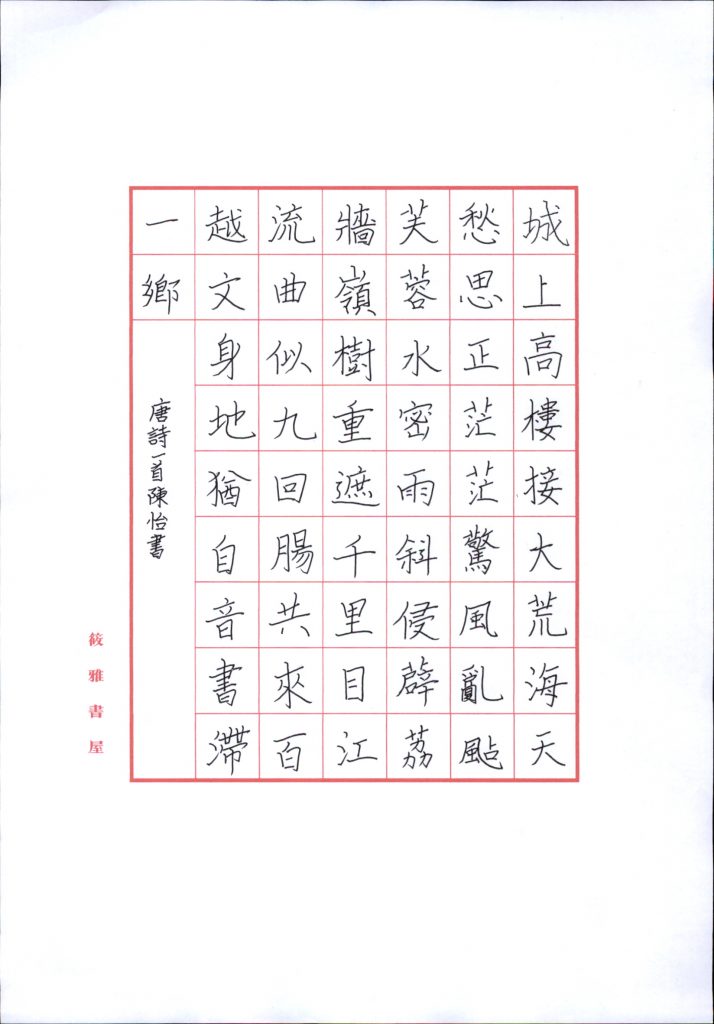 城上高樓接大荒海天
愁思正茫茫驚風亂颭
芙蓉水密雨斜侵薜荔
牆嶺樹重遮千里目江
流曲似九回腸共來百
越文身地猶自音書滯
一鄉
唐詩一首陳怡書
筱雅書屋